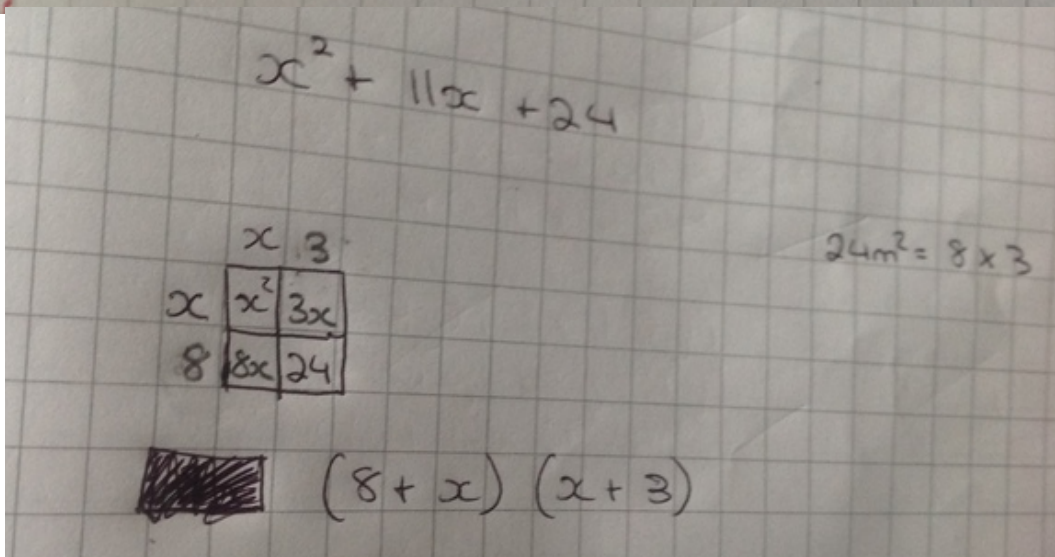 x² + 11x + 24
x 3
x x² 3x
8 8x 24
24m² = 8 × 3
(8 + x) (x + 3)